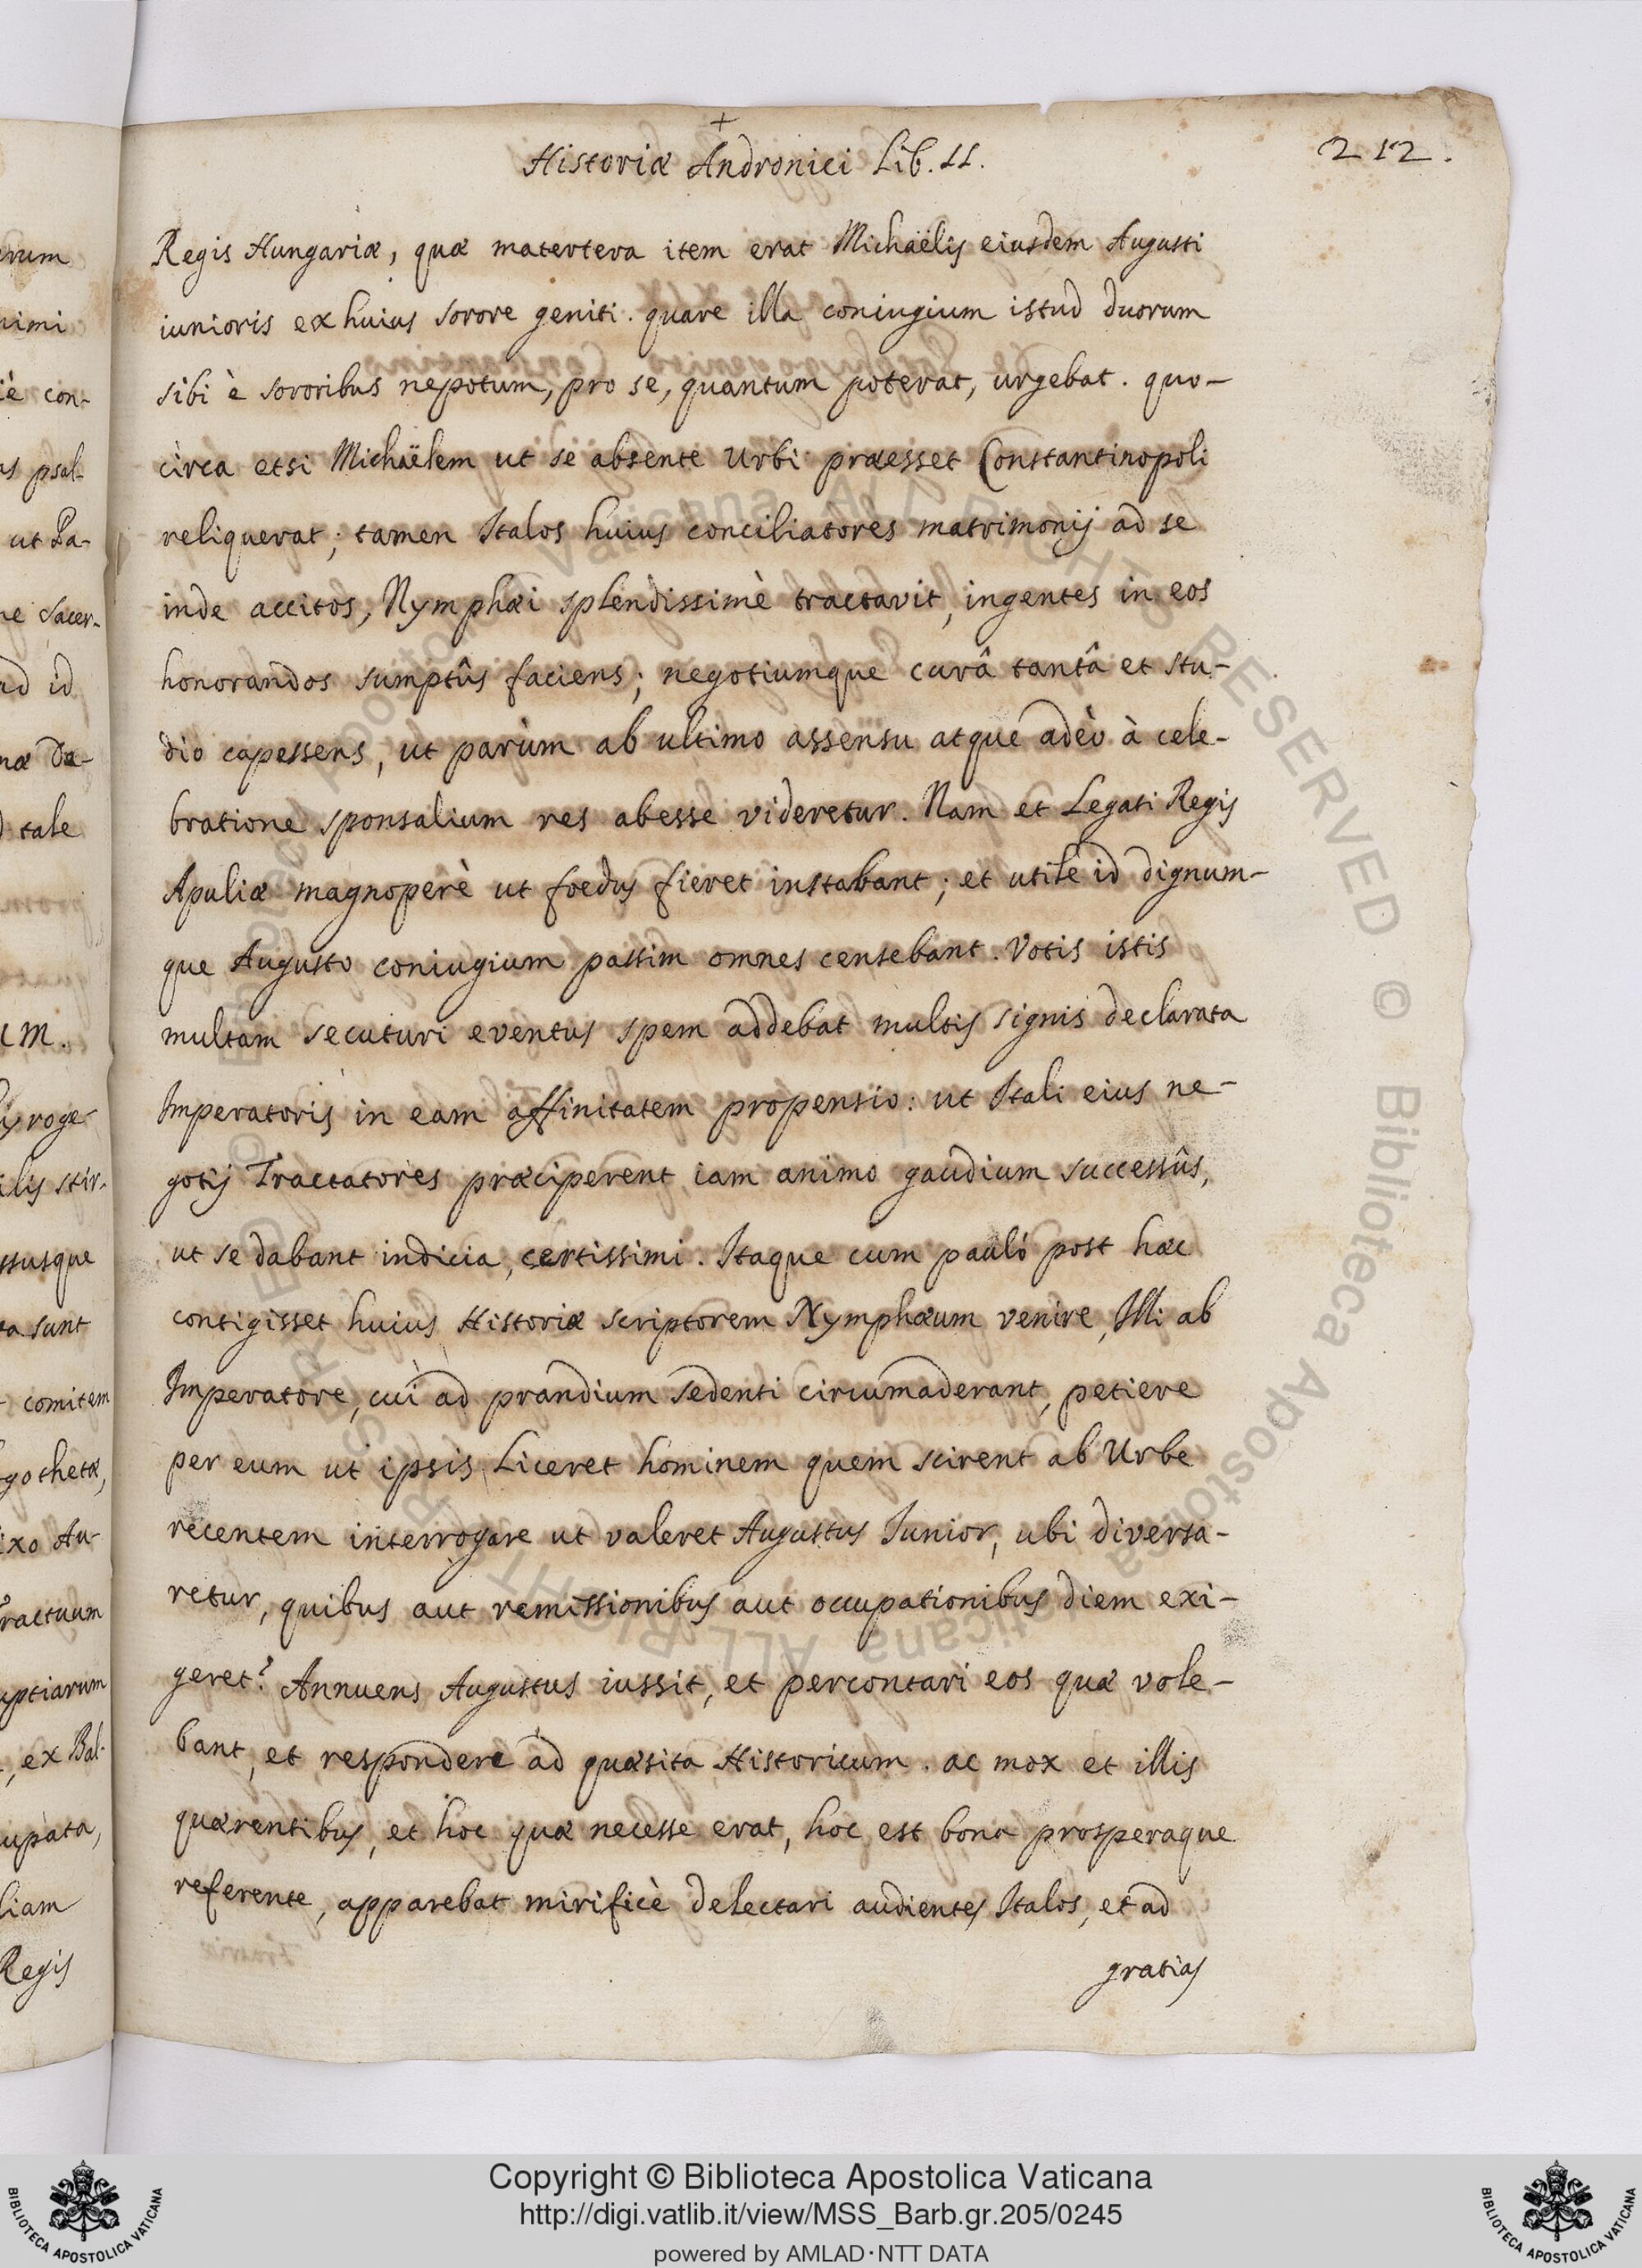 +
Historiæ Andronici Lib. II.
212.
Regis Hungariæ, quæ matertera item erat Michaëlis eiusdem Augusti
iunioris ex huius sorore geniti. quare illa coniugium istud duorum
sibi è sororibus nepotum, pro se, quantum poterat, urgebat. quo-
circa etsi Michaëlem ut se absente Urbi præesset Constantinopoli
reliquerat; tamen Italos huius conciliatores matrimonij ad se
inde accitos, Nymphæi splendissimè tractavit, ingentes in eos
honorandos sumptûs faciens; negotiumque curâ tantâ et stu-
dio capessens, ut parùm ab ultimo assensu atque adèo à cele-
bratione sponsalium res abesse videretur. Nam et Legati Regis
Apuliæ magnoperè ut foedus fieret instabant; et utile id dignum-
que Augusto coniugium passim omnes censebant. Votis istis
multam secuturi eventus spem addebat multis signis declarata
Imperatoris in eam affinitatem propensio: ut Itali eius ne-
gotij Tractatores præciperent iam animo gaudium successûs,
ut se dabant indicia, certissimi. Itaque cum pauló post hæc
contigisset huius Historiæ scriptorem Nymphæum venire, Illi ab
Imperatore, cui ad prandium sedenti circumaderant, petiere
per eum ut ipsis Liceret hominem quem scirent ab Urbe
recentem interrogare ut valeret Augustus Iunior, ubi diversa-
retur, quibus aut remissionibus aut occupationibus diem exi-
geret? Annuens Augustus iussit, et percontari eos quæ vole-
bant, et respondere ad quæsita Historicum. ac mox et illis
quærentibus, et hoc quæ necesse erat, hoc est bona prosperaque
referente, apparebat mirificè delectari audientes Italos, et ad
gratias
erum
nimi
iè con-
us psal-
ut Pa-
ne sacer-
ad id
tale
um.
ssusque
ta sunt
comitem
gothetæ,
ixo Au-
ractuum
uptiarum
, ex Bal-
upata,
liam
Regis
Biblioteca Apostolica Vaticana ALL RIGHTS RESERVED ©
Copyright © Biblioteca Apostolica Vaticana
http://digi.vatlib.it/view/MSS_Barb.gr.205/0245
powered by AMLAD·NTT DATA
BIBLIOTECA APOSTOLICA VATICANA
BIBLIOTECA APOSTOLICA VATICANA